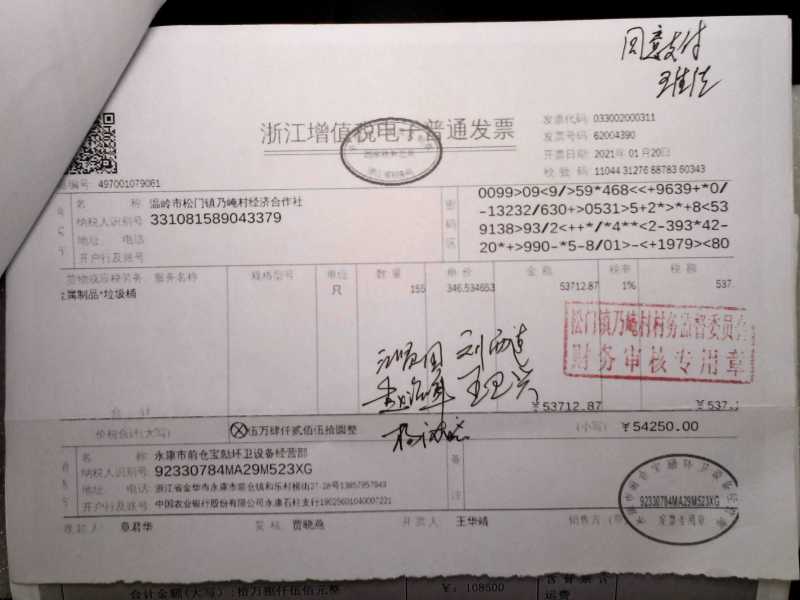 同意支付
浙江增值税电子普通发票
发票代码: 033002000311
发票号码: 62004390
开票日期: 2021年01月20日
校验码: 11044 31276 88783 60343
编号: 497001079061
名称: 温岭市松门镇乃崦村经济合作社
纳税人识别号: 331081589043379
地址、电话:
开户行及账号:
密码区
0099>09<9/>59*468<<+9639+*0/
-13232/630+>0531>5+2*>*+8<53
9138>93/2<++*/*4**<2-393*42-
20*+>990-*5-8/01>-<+1979><80
货物或应税劳务、服务名称 规格型号 单位 数量 单价 金额 税率 税额
属制品*垃圾桶 只 155 346.534653 53712.87 1% 537.
松门镇乃崦村村务监督委员会
财务审核专用章
合计 ￥53712.87 ￥537.
价税合计(大写) 伍万肆仟贰佰伍拾圆整 (小写) ￥54250.00
永康市前仓宝励环卫设备经营部
纳税人识别号: 92330784MA29M523XG
地址、电话: 浙江省金华市永康市前仓镇和乐村横街27-28号13857957943
开户行及账号: 中国农业银行股份有限公司永康石柱支行19025601040007221
备注
收款人: 章君华 复核: 贾晓燕 开票人: 王华靖 销售方:(章)
92330784MA29M523XG
发票专用章
合计金额(大写):拾万捌仟伍佰元整 ￥: 108500 含普票含运费